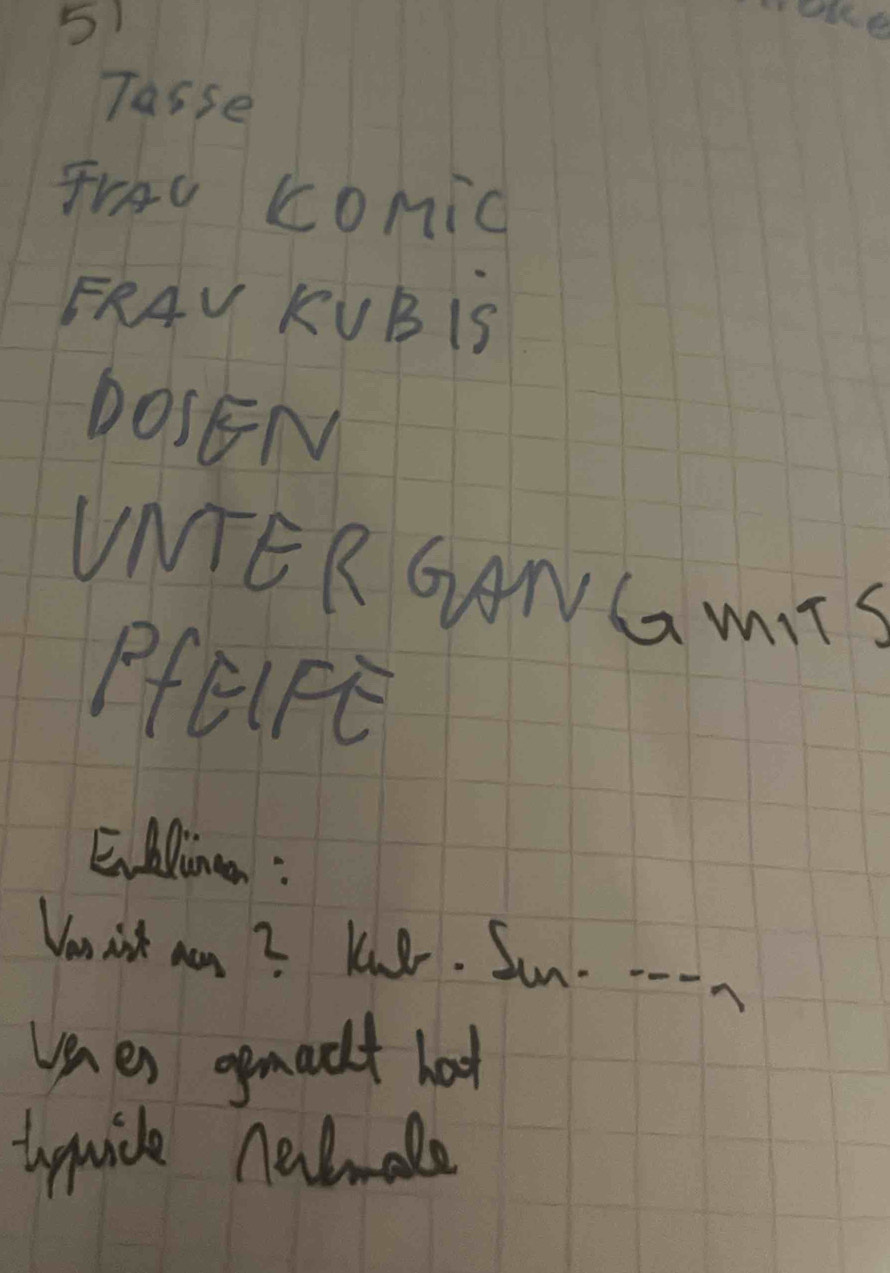 5)
Tasse
FRAU KOMiC
FRAU KUBiS
DOSEN
UNTERGANG MIT S
PfEIFE
Erklären:
Was ist das? Kub. Sur. ----,
Wer es gemacht hat
typische Merkmale